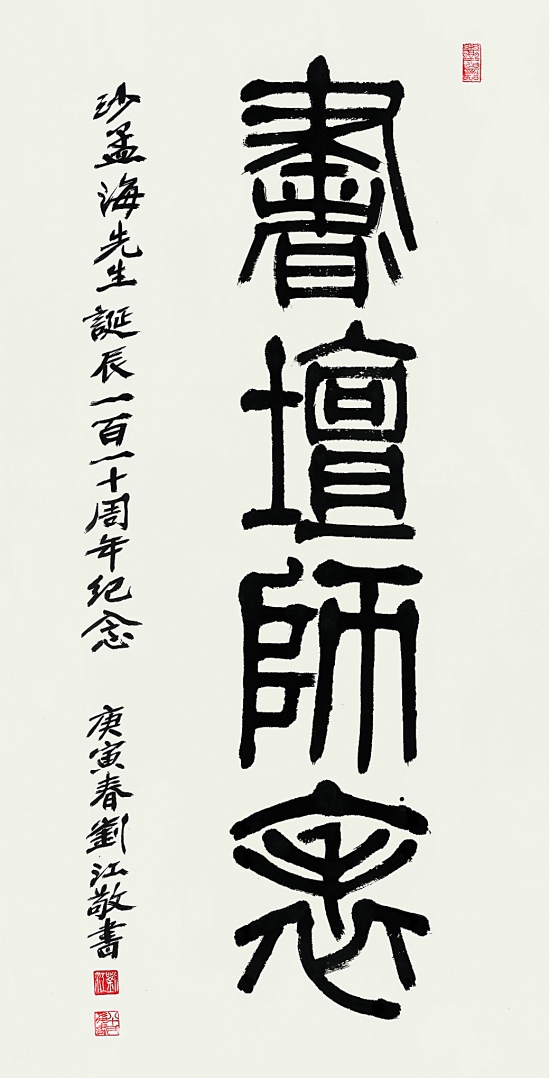 書壇師表
沙孟海先生誕辰一百一十周年紀念 庚寅春劉江敬書